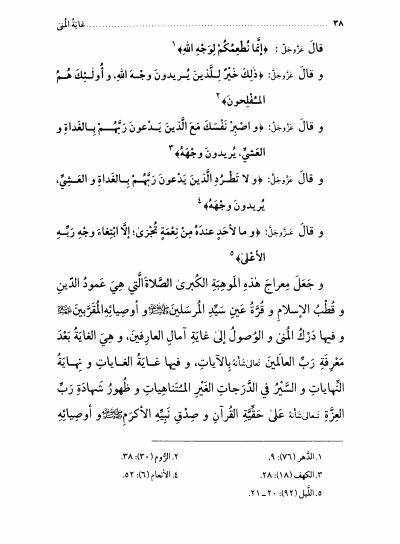 ٣٨ غاية المنى
قالَ عَزَّوَجَلَّ : ﴿إِنَّما نُطْعِمُكُمْ لِوَجْهِ اللهِ﴾١
و قالَ عَزَّوَجَلَّ: ﴿ذٰلِكَ خَيْرٌ لِلَّذينَ يُريدونَ وَجْهَ اللهِ، و أُولٰـئِكَ هُمُ
المُفْلِحونَ﴾٢
و قالَ عَزَّوَجَلَّ: ﴿و اصْبِرْ نَفْسَكَ مَعَ الَّذينَ يَدْعونَ رَبَّهُمْ بِالغَداةِ و
العَشيِّ، يُريدونَ وَجْهَهُ﴾٣
و قالَ عَزَّوَجَلَّ: ﴿و لا تَطْرُدِ الَّذينَ يَدْعونَ رَبَّهُمْ بِالغَداةِ و العَشيِّ،
يُريدونَ وَجْهَهُ﴾٤
و قالَ عَزَّوَجَلَّ: ﴿و ما لأحَدٍ عِندَهُ مِنْ نِعْمَةٍ تُجْزىٰ؛ إلَّا ابْتِغاءَ وَجْهِ رَبِّهِ
الأعْلىٰ﴾٥
و جَعَلَ مِعراجَ هٰذِهِ المَوهِبَةِ الكُبرىٰ الصَّلاةَ الَّتي هِيَ عَمودُ الدّينِ
و قُطْبُ الإسلامِ و قُرَّةُ عَينِ سَيِّدِ المُرسَلينَ ﷺ و أوصِيائِهِ المُقَرَّبينَ
و فيها دَرْكُ المُنىٰ و الوُصولُ إلىٰ غايَةِ آمالِ العارِفينَ، و هِيَ الغايَةُ بَعْدَ
مَعْرِفَةِ رَبِّ العالَمينَ تَعالىٰ شَأنُهُ بِالآياتِ، و فيها غايَةُ الغاياتِ و نِهايَةُ
النِّهاياتِ و السَّيْرُ في الدَّرَجاتِ الغَيْرِ المُتَناهِياتِ و ظُهورُ شَهادَةِ رَبِّ
العِزَّةِ تَعالىٰ شَأنُهُ عَلىٰ حَقِّيَّةِ القُرآنِ و صِدْقِ نَبِيِّهِ الأكرَمِ ﷺ و أوصِيائِهِ
١. الدّهر (٧٦): ٩. ٢. الرّوم (٣٠): ٣٨.
٣. الكهف (١٨): ٢٨. ٤. الأنعام (٦): ٥٢.
٥. اللّيل (٩٢): ٢٠ ـ ٢١.